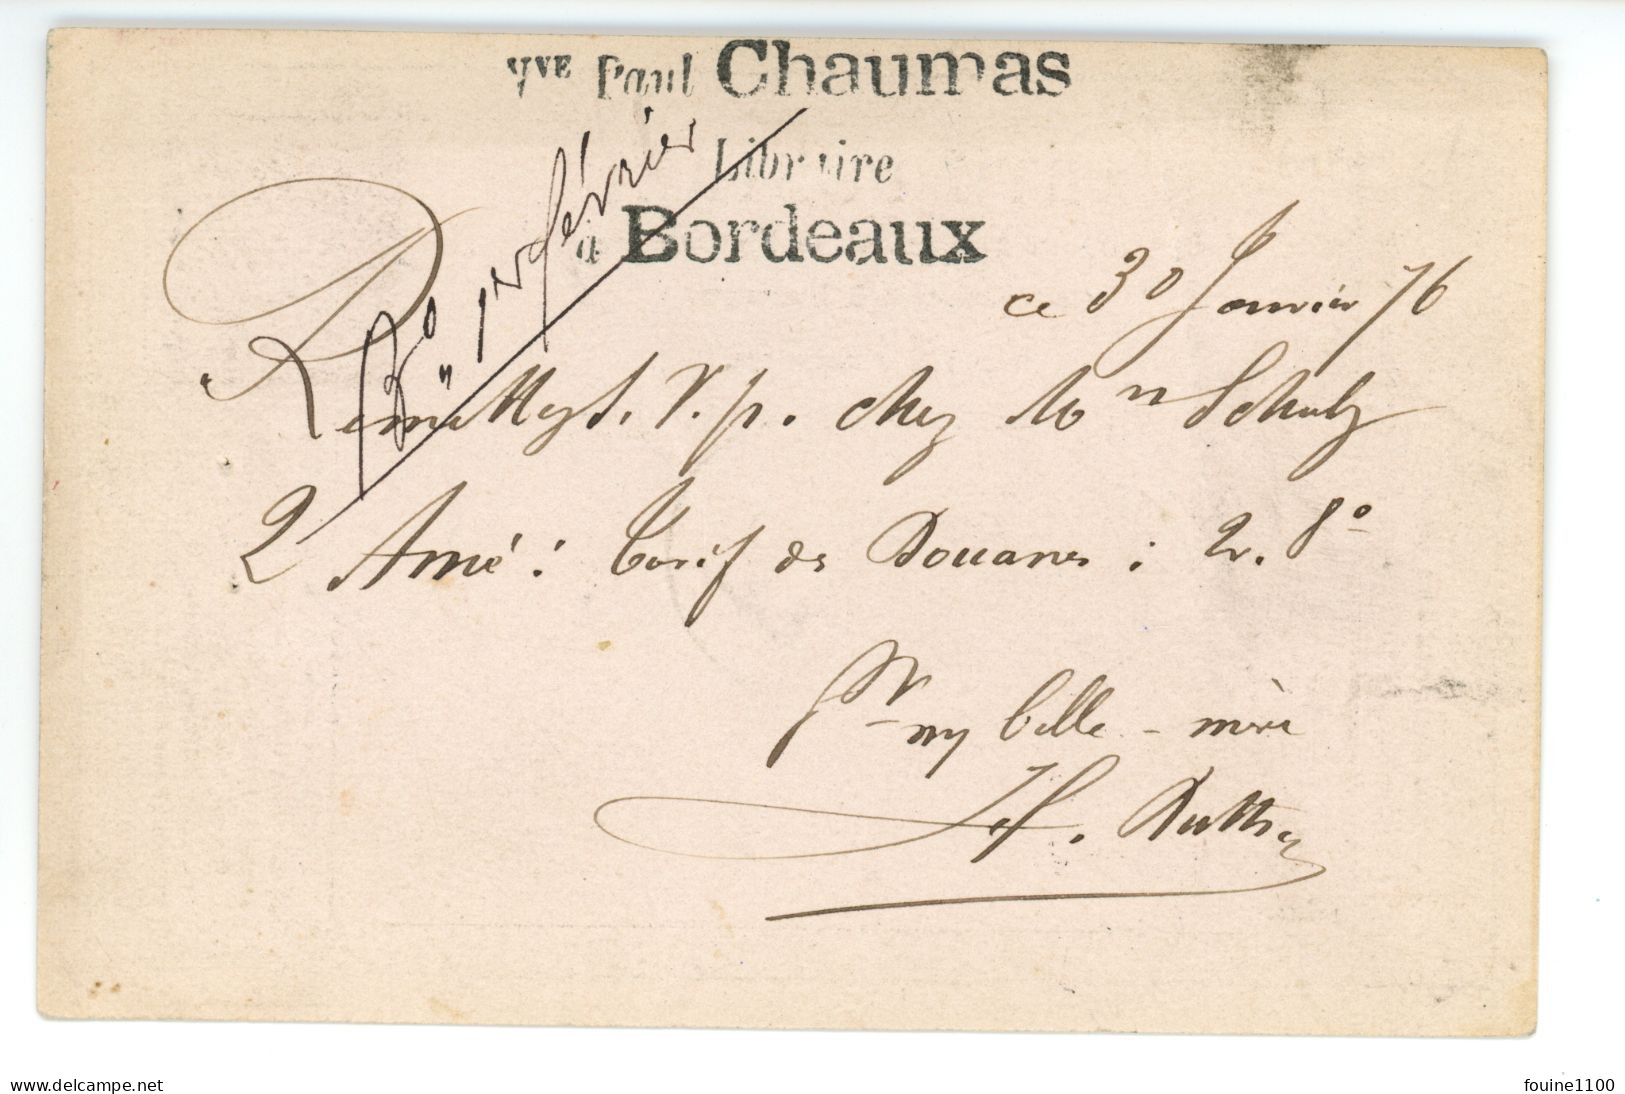 Vve Paul Chaumas
Libraire
à Bordeaux
Bo 1er février
ce 30 Janvier 76
Remettez S. V. p. chez Mon Schulz
2 Amé : Tarif des Douanes : 2. 8o
Pr my belle-mère
www.delcampe.net
fouine1100